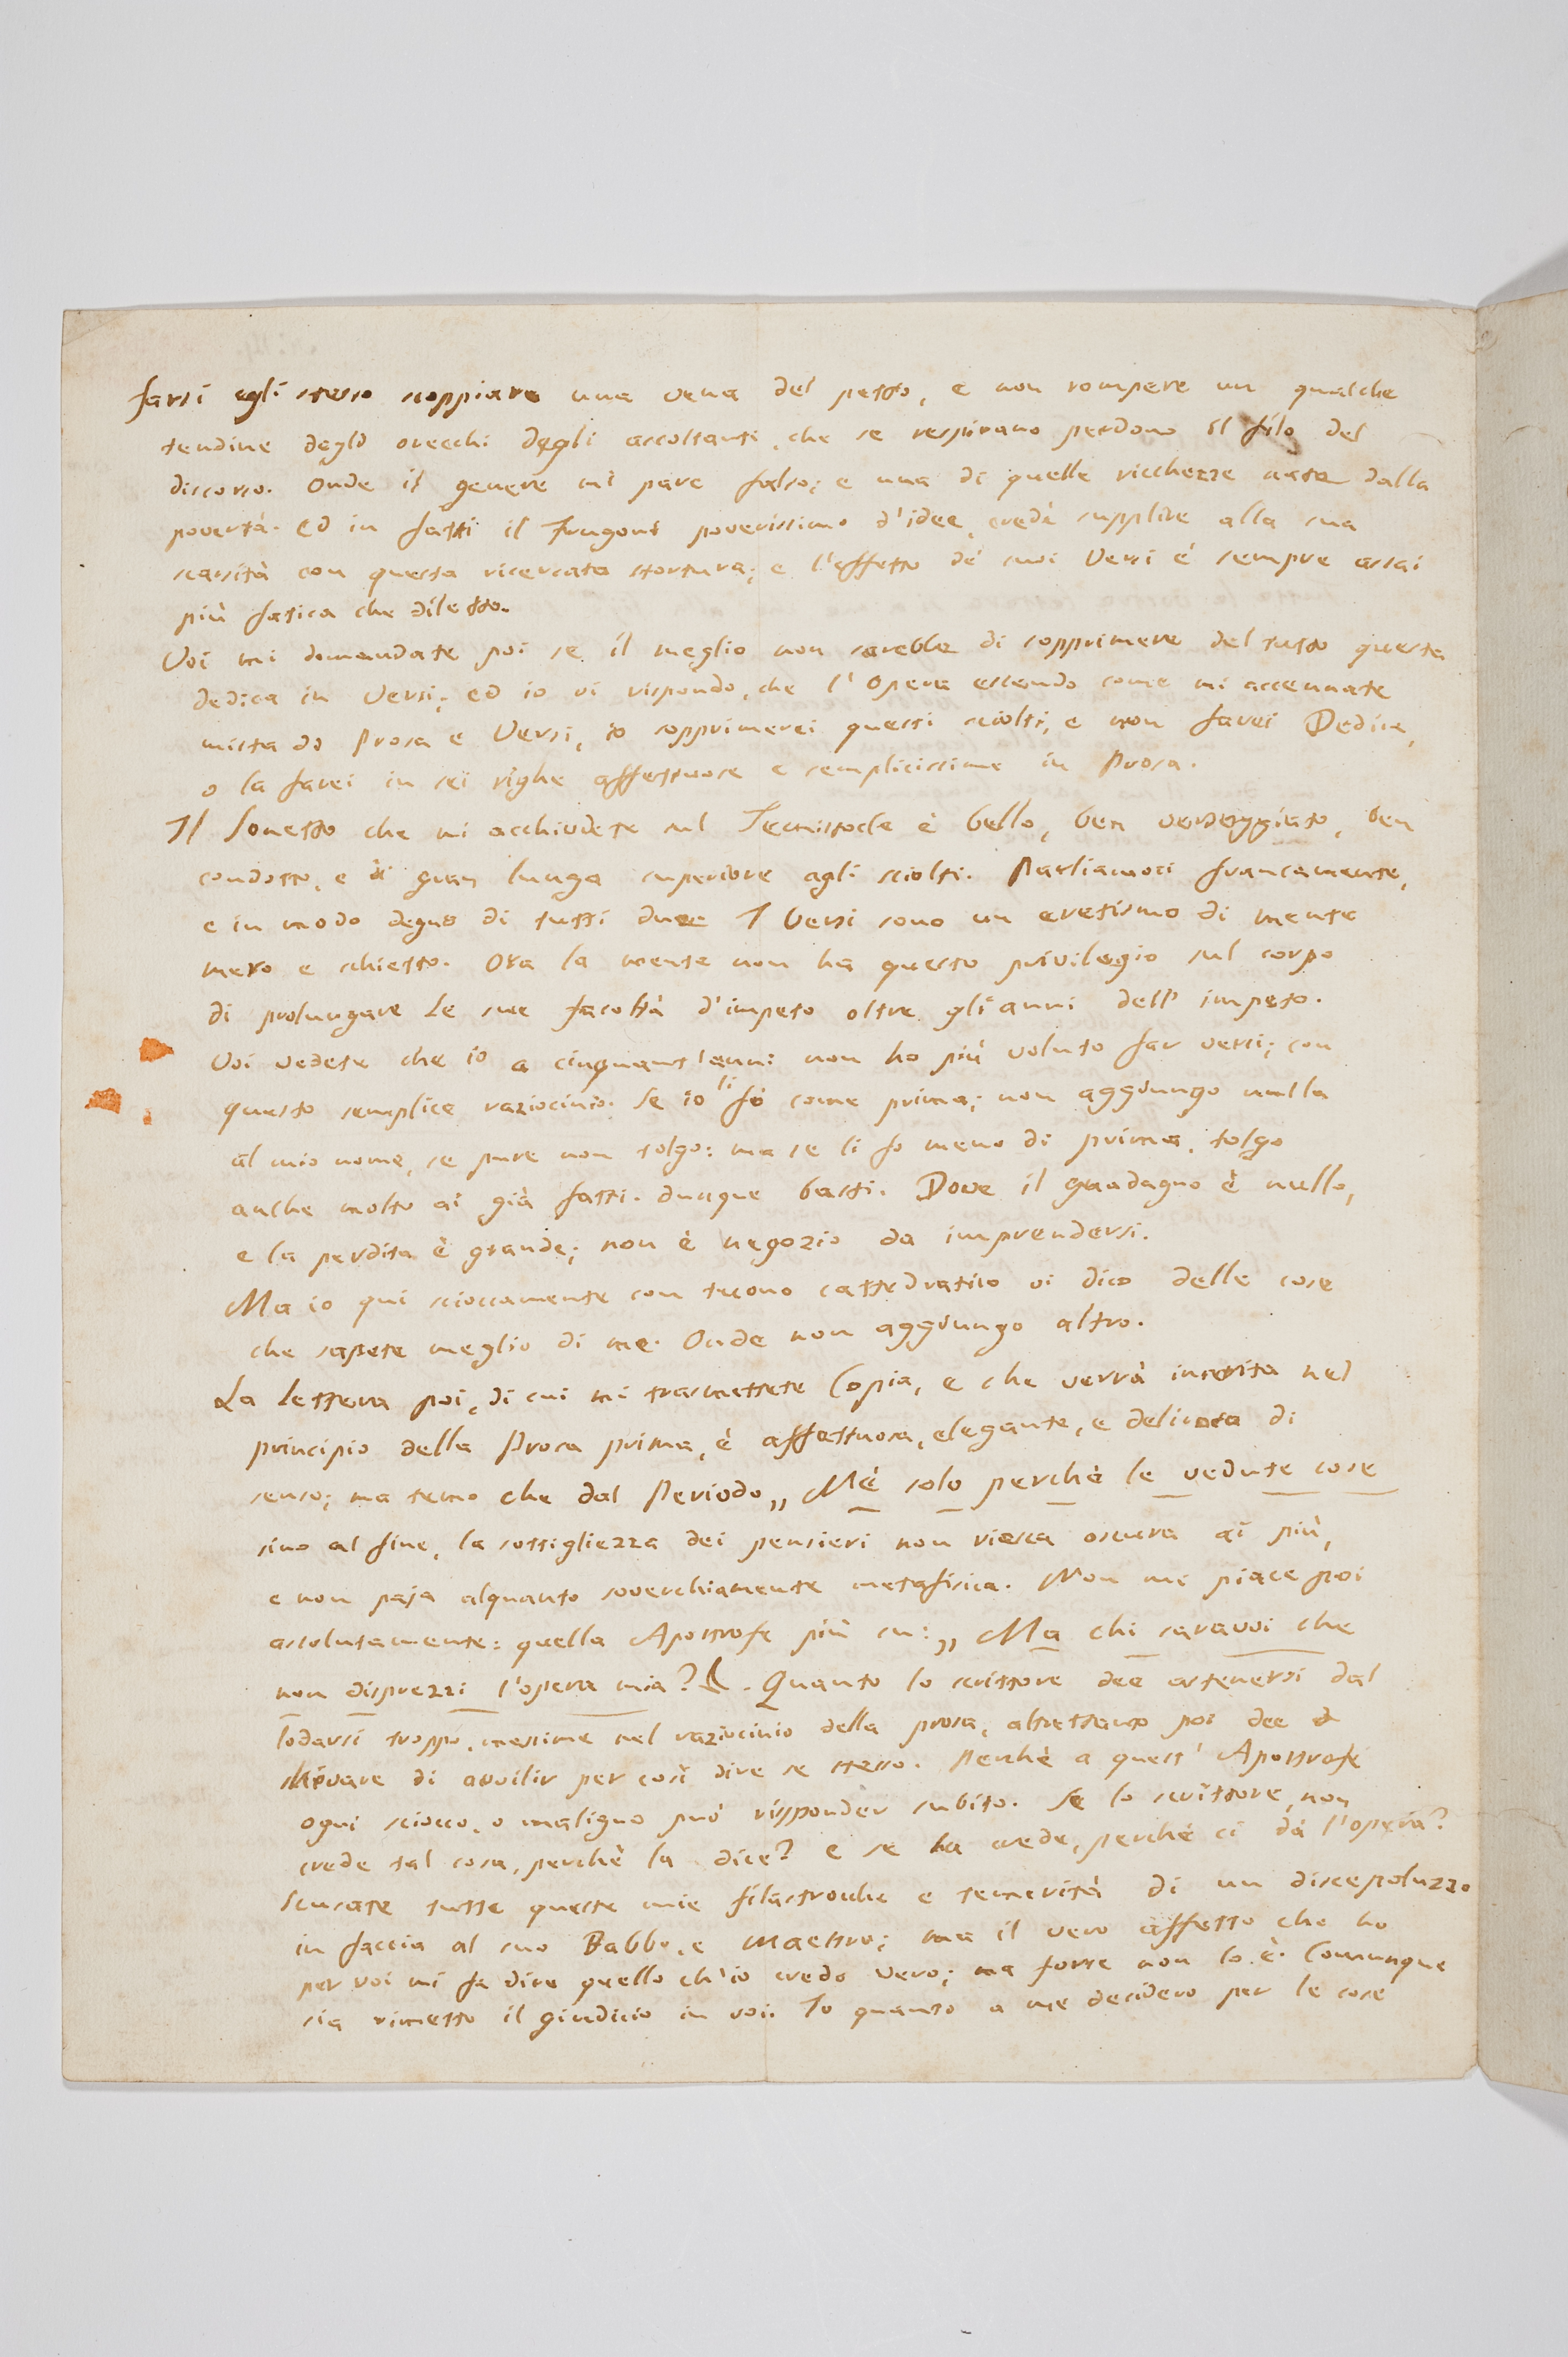 farsi egli stesso scoppiare una vena del petto, e non rompere un qualche
tendine degli orecchi degli ascoltanti, che se respirano perdono il filo del
discorso. Onde il genere mi pare falso; e una di quelle ricchezze nate dalla
povertà. Ed in fatti il Frugoni poverissimo d'idee, credè supplire alla sua
scarsità con questa ricercata stortura; e l'effetto de' suoi Versi è sempre assai
più fatica che diletto.
Voi mi domandate poi se il meglio non sarebbe di sopprimere del tutto questa
dedica in Versi; ed io vi rispondo, che l'Opera essendo come mi accennate
mista di Prosa e Versi, io sopprimerei questi sciolti, e non farei Dedica,
o la farei in sei righe affettuose e semplicissime in Prosa.
Il Sonetto che mi acchiudete sul Temistocle è bello, ben verseggiato, ben
condotto, e di gran lunga superiore agli sciolti. Parliamoci francamente,
e in modo degno di tutti due I Versi sono un eretismo di mente
mero e schietto. Ora la mente non ha questo privilegio sul corpo
di prolungare le sue facoltà d'impeto oltre gli anni dell'impeto.
Voi vedete che io a cinquant'anni non ho più voluto far versi; con
questo semplice raziocinio. Se io li fò come prima; non aggiungo nulla
al mio nome, se pure non tolgo: ma se li fo meno di prima, tolgo
anche molto ai già fatti. dunque basti. Dove il guadagno è nullo,
e la perdita è grande; non è negozio da imprendersi.
Ma io qui scioccamente con tuono cattedratico vi dico delle cose
che sapete meglio di me. Onde non aggiungo altro.
La lettera poi, di cui mi trasmettete Copia, e che verrà inserita nel
principio della Prosa prima, è affettuosa, elegante, e delicata di
senso; ma temo che dal Periodo,, Nè solo perchè le vedute cose
sino al fine, la sottigliezza dei pensieri non riesca oscura ai più,
e non paja alquanto soverchiamente metafisica. Non mi piace poi
assolutamente: quella Apostrofe più su:,, Ma chi saravvi che
non disprezzi l'opera mia? . Quanto lo scrittore dee astenersi dal
lodarsi troppo, massime nel raziocinio della prosa, altrettanto poi dee
schivare di avvilir per così dire se stesso. Perchè a quest'Apostrofe
ogni sciocco, o maligno può risponder subito. Se lo scrittore, non
crede tal cosa, perchè la dice? e se la crede, perchè ci dà l'opera?
Scusate tutte queste mie filastrocche e temerità di un discepoluzzo
in faccia al suo Babbo, e Maestro; ma il vero affetto che ho
per voi mi fa dire quello ch'io credo vero; ma forse non lo è. Comunque
sia rimetto il giudicio in voi. Io quanto a me desidero per le cose